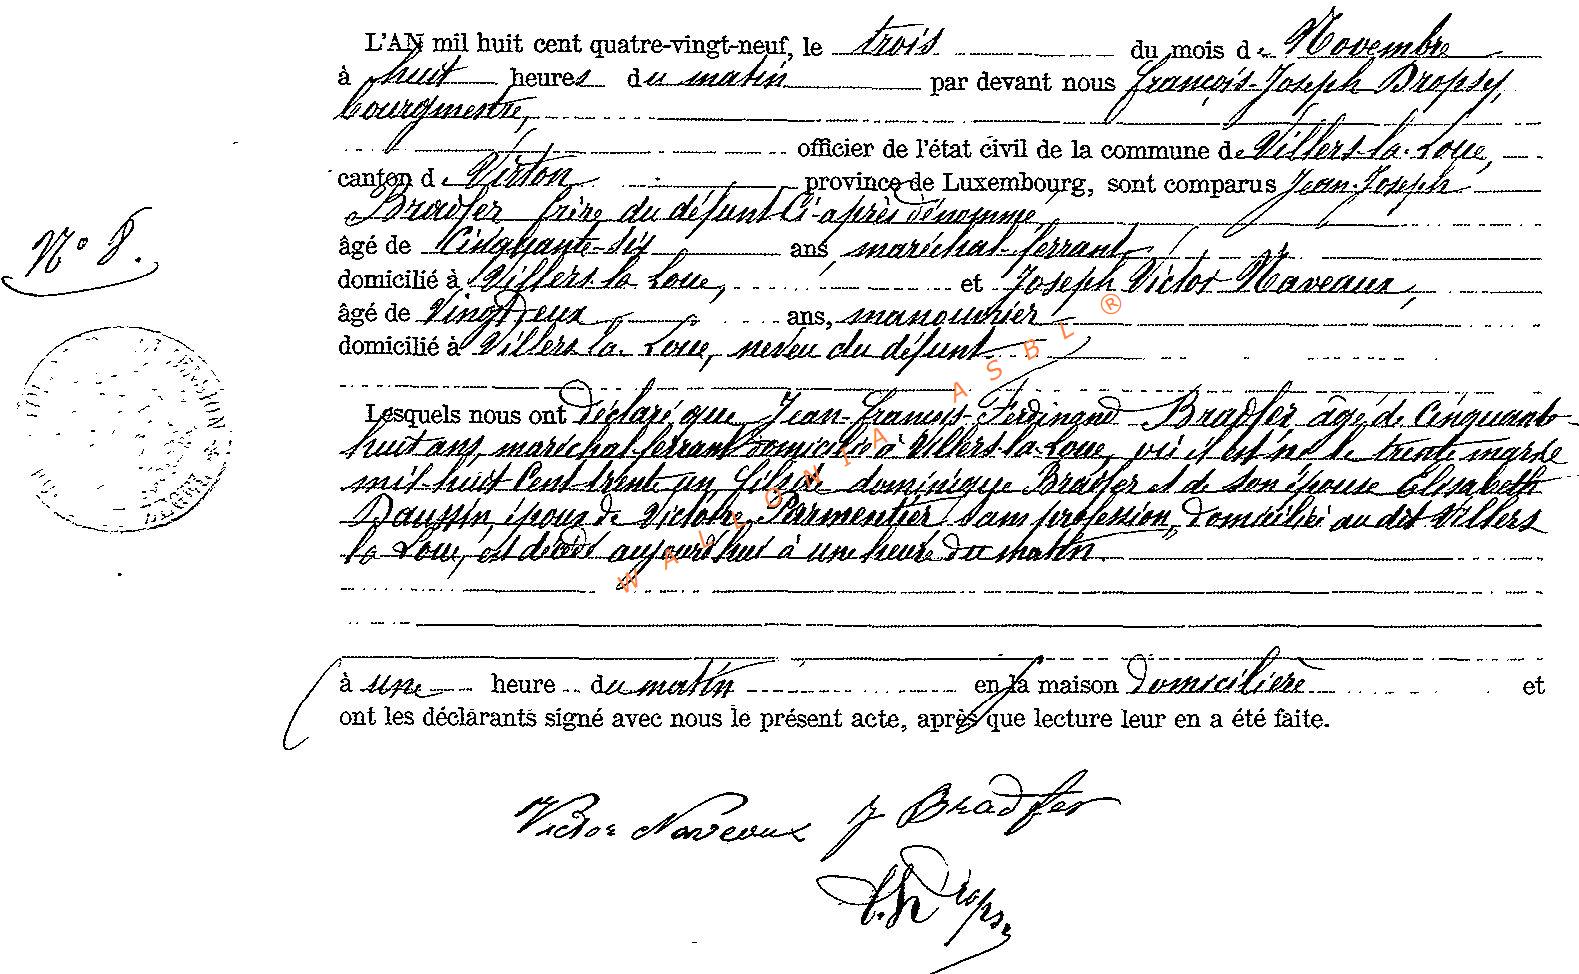 L'AN mil huit cent quatre-vingt-neuf, le trois du mois de Novembre
à huit heures du matin par devant nous François-Joseph Dropsy,
bourgmestre,
officier de l'état civil de la commune de Villers-la-Loue,
canton de Virton province de Luxembourg, sont comparus Jean-Joseph
Bradfer frère du défunt ci-après dénommé,
N° 8.
âgé de cinquante-six ans, maréchal-ferrant,
domicilié à Villers-la-Loue, et Joseph Victor Naveaux,
âgé de vingt deux ans, manouvrier
domicilié à Villers-la-Loue, neveu du défunt
Lesquels nous ont déclaré que Jean-François-Ferdinand Bradfer âgé de cinquante
huit ans, maréchal ferrant domicilié à Villers-la-Loue, où il est né le trente mars de
mil-huit cent trente un, fils de dominique Bradfer et de son épouse Elisabeth
Daussin, époux de Victoire Parmentier sans profession, domiciliée au dit Villers
la Loue, est décédé aujourd'hui à une heure du matin.
à une heure du matin en la maison domicilière et
ont les déclarants signé avec nous le présent acte, après que lecture leur en a été faite.
Victor Naveaux J Bradfer
Dropsy
WALLONIA ASBL ®